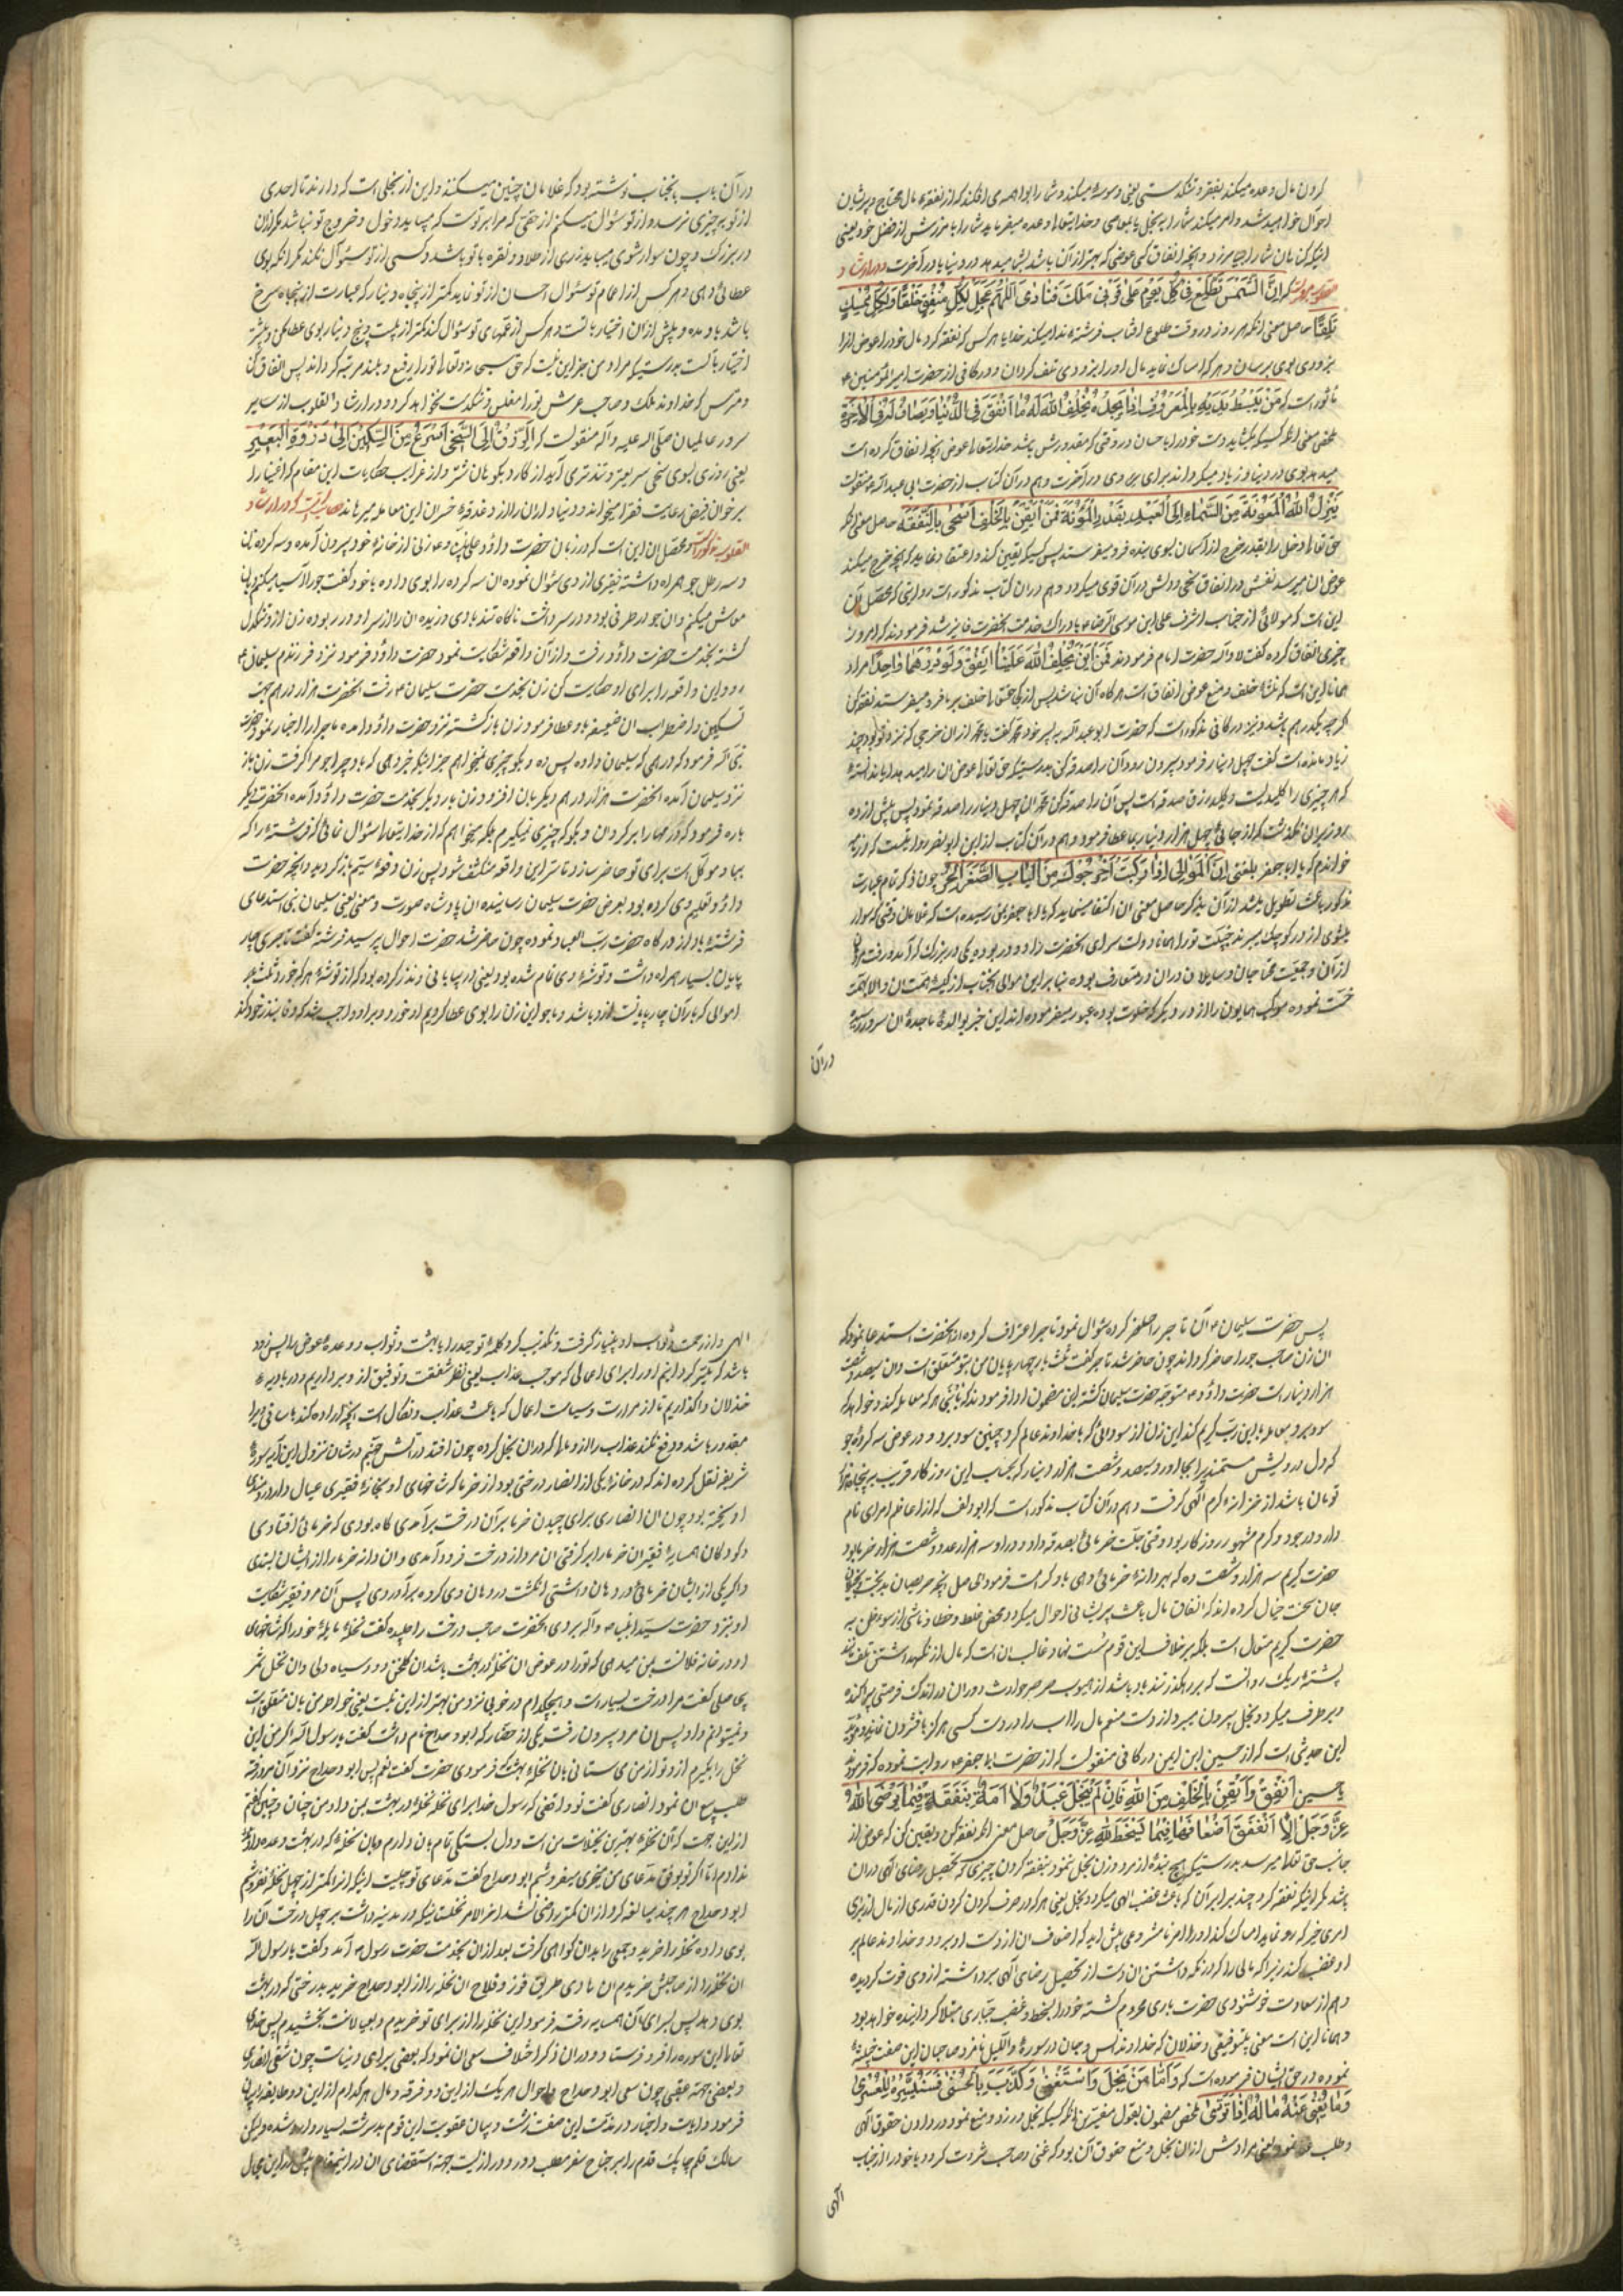 کردن مال وعده میکند بفقر و تنکدستی یعنی وسوسه میکند و شما را بواهمه می افکند که از نفقه مال محتاج و پریشان
احوال خواهید شد و امر میکند شما را ببخل یا بمعاصی و خدایتعالی وعده میفرماید شما را بآمرزش از فضل خود یعنی
اینکه کناهان شما را بیامرزد و آنچه انفاق کنی عوضی که بهتر از آن باشد بشما میدهد در دنیا یا در آخرت و در ارشاد
القلوب مرویست که اِنَّ الشَّمسَ تَطْلُعُ فی کُلِّ یَومٍ عَلی قَرنَی مَلَکٍ فَنادی اَللّهُمَّ عَجِّل لِکُلِّ مُنفِقٍ خَلَفًا وَلِکُلِّ مُمسِکٍ
تَلَفًا حاصل معنی آنکه هر روز در وقت طلوع آفتاب فرشته ندا میکند خدایا هر کس که نفقه کرد مال خود را عوض آنرا
بزودی بوی برسان و هر که امساک نماید مال او را بزودی تلف کردان و در کافی از حضرت امیرالمؤمنین ع
مأثور است که مَنْ یَبْسُطْ یَدَیْهِ بِالْمَعْرُوفِ اِذا یَجِدُهُ یُخْلِفُ اللهُ لَهُ ما اَنْفَقَ فِی الدُّنْیا وَ یُضاعِفُ لَهُ فِی الاخِرَةِ
ملخص معنی آنکه کسیکه بکشاید دست خود را باحسان در وقتی که مقدورش باشد خدایتعالی عوض آنچه انفاق کرده است
میدهد بوی در دنیا و زیاد میکرداند برای وی در آخرت و هم در آن کتاب از حضرت ابی عبدالله ع منقولست
یَنْزِلُ اللهُ الْمَعُونَةَ مِنَ السَّماءِ اِلَی الْعَبْدِ بِقَدْرِ الْمَؤُنَةِ فَمَنْ اَیْقَنَ بِالْخَلَفِ اَسْخی بِالنَّفَقَه حاصل معنی آنکه
حق تعالی دخل را بقدر خرج از آسمان بسوی بنده فرو میفرستد پس کسیکه یقین کند و اعتقاد نماید که آنچه خرج میکند
عوض آن میرسد نفسش در انفاق سخی و دلش در آن قوی میکردد و هم در آن کتاب مذکور است روایتی که محصل آن
این است که مولائی از جناب اشرف علی ابن موسی الرضا ع بادراک خدمت آنحضرت فایز شد فرمودند که امروز
چیزی انفاق کرده کفت لا والله حضرت امام فرمودند فَمِنْ اَیْنَ یُخْلِفُ اللهُ عَلَیْنا اَنْفِقْ وَلَوْ دِرْهَمًا واحِدًا مراد
همانا این است که منشاء خلف و منبع عوض انفاق است هر کاه آن نباشد پس از کجا حق تعالی خلف بر ما فرو میفرستد نفقه کن
اکر چه یکدرهم باشد و نیز در کافی مذکور است که حضرت ابو عبدالله به پسر خود محمد کفت یا محمد از آن خرجی که نزد تو بود چند
زیاد مانده است کفت چهل دینار فرمود بیرون رو و آن را صدقه کن بدرستیکه حق تعالی عوض آن را میدهد آیا ندانسته
که هر چیزی را کلیدیست و کلید رزق صدقه است پس آن را صدقه کن محمد آن چهل دینار را صدقه نمود پس بیش از ده
روز بر آن نکذشت که از جائی چهار هزار دینار بما عطا فرمود و هم در آن کتاب از ابن ابو نصر روایتست که در نامه
خواندم که یا ابا جعفر بلغنی اَنَّ الْمَوالِی اِذا رَکِبْتَ اَخْرَجُوکَ مِنَ الْبابِ الصَّغیرِ الخ چون ذکر تمام عبارت
مذکور باعث تطویل میشد از آن بذکر حاصل معنی آن اکتفا مینماید که یا ابا جعفر بمن رسیده است که غلامان وقتی که سوار
میشوی از در کوچک میبرند چیست تو را همانا دولت سرای آنحضرت را دو در بوده یکی در بزرک که آمد و رفت مردم
از آن و جمعیت محتاجان و سایلان در آن در متعارف بوده بنابراین موالی آنجناب از کیسه همت آن والا همت
خست نموده موکب همایون را از در دیکر که خلوت بوده عبور میفرموده اند این خبر بوالده ماجده آن سرور رسیده
در آن
در آن باب بآنجناب نوشته بود که غلامان چنین میکنند و این از بخلی است که دارند تا احدی
از تو بر چیزی نرسد و از تو سؤال میکنم از حقی که مرا بر توست که میباید دخول و خروج تو نباشد مکر از آن
در بزرک و چون سوار شوی میباید زری از طلا و نقره با تو باشد و کسی از تو سؤال نکند مکر آنکه بوی
عطائی دهی و هر کس از اعمام تو سؤال احسان از تو نماید کمتر از پنجاه دینار که عبارت از پنجاه سرخ
باشد باو مده و بیش از آن اختیار با تست و هر کس از عمهای تو سؤال کند کمتر از بیست و پنج دینار بوی عطا مکن و بیشتر
اختیار با تست بدرستیکه مراد من جز این نیست که حق سبحانه و تعالی تو را رفیع و بلند مرتبه کرداند پس انفاق کن
و مترس که خداوند ملک و صاحب عرش تو را مفلس و تنکدست نخواهد کرد و در ارشاد القلوب از سایر
سرور عالمیان صلی الله علیه و آله منقولست که اَلرِّزْقُ اِلَی السَّخِیِّ اَسْرَعُ مِنَ السِّکِّینِ اِلی ذَرْوَةِ الْبَعیرِ
یعنی روزی بسوی سخی سریعتر و تندتر می آید از کارد بکوهان شتر و از غرایب حکایات این مقام که اغنیا را
بر خوان فیض رعایت فقرا میخواند و دنیاداران را از دغدغه خسران این معامله میرهاند حکایتیست که در ارشاد
القلوب مذکور است و محصل آن این است که در زمان حضرت داود علی نبینا و ع زنی از خانه خود بیرون آمده و سه کرده نان
و سه رطل جو همراه داشته فقیری از وی سئوال نموده آن سه کرده را بوی داده با خود کفت جو را آسیا میکنم و بآن
معاش میکنم و آن جو در ظرفی بود و در سر داشت ناکاه تند بادی وزیده آن را از سر او در ربوده زن از و تنکدل
کشته بخدمت حضرت داود رفت و از آن واقعه شکایت نمود حضرت داود فرمود نزد فرزندم سلیمان ع
رو و این واقعه را برای او حکایت کن زن بخدمت حضرت سلیمان ع رفت آنحضرت هزار درهم جهت
تسکین و اضطراب آن ضعیفه باو عطا فرمود زن بازکشته نزد حضرت داود آمده ماجرا را اخبار نمود حضرت
نبی الله فرمود که درهمی که سلیمان داده پس ده و بکو چیزی نمیخواهم جز اینکه خبر دهی که باد چرا جو مرا کرفت زن باز
نزد سلیمان آمده آنحضرت هزار درهم دیکر بآن افزود زن بار دیکر بخدمت حضرت داود آمده آنحضرت دیکر
باره فرمود که درهمها را برکردان و بکو که چیزی نمیکیرم بلکه میخواهم که از خدایتعالی سؤال نمائی که فرشته را که
بباد موکل است برای تو حاضر سازد تا سر این واقعه منکشف شود پس زن دفعه سیم بازکردید و آنچه حضرت
داود تعلیم وی کرده بود بعرض حضرت سلیمان رسانیده آن پادشاه صورت و معنی یعنی سلیمان نبی استدعای
فرشته باد از درکاه حضرت رب العباد نموده چون حاضر شد حضرت احوال پرسید فرشته کفت تاجری چهار
پایان بسیار همراه داشت و توشه وی تمام شده بود یعنی در بیابانی و نذر کرده بود که از توشه هر که خورد ثلث
اموالی که بار آن چارپایانست از او باشد و ما جو این زن را بوی عطا کردیم او خورد و بر او واجب شد که وفا بنذر خود کند
پس حضرت سلیمان ع آن تاجر را حاضر کرده سؤال نمود تاجر اعتراف کرده از آنحضرت استدعا نمود که
آن زن صاحب جو را حاضر کرداند چون حاضر شد تاجر کفت ثلث بار چهارپایان من بتو متعلق است و آن سیصد و شصت
هزار دینار است حضرت داود ع متوجه حضرت سلیمان کشته این مضمون ادا فرمودند که یا بنی هر که معامله کند و خواهد که
سود برد معامله با این رب کریم کند این زن از سودائی که با خداوند عالم کرد چنین سود برد و در عوض سه کرده جو
که دل درویش مستمند را بجا آورد سیصد و شصت هزار دینار که بحساب این روزکار قریب به پنجاه هزار
تومان باشد از خزانه کرم الهی کرفت و هم در آن کتاب مذکور است که ابودلف که از اعاظم امرای نام
دار و در جود و کرم مشهور روزکار بود وقتی جلت خرمائی بصدقه داد و در او سه هزار عدد و شصت هزار خرما بود
حضرت کریم سه هزار و شصت ده که بهر دانه خرمائی دهی باو کرامت فرمود الحاصل آنچه حریصان بدبخت و بخیلان
جان سخت خیال کرده اند که انفاق مال باعث پریشانی احوال میکردد محض غلط و خطا و ناشی از سوء ظن به
حضرت کریم متعال است بلکه بر خلاف این قوم سست نهاد غالب آن است که مال از نکهداشتن تلف مانند
پشته ریک روانست که بر رهکذر تند باد باشد از هبوب صرصر حوادث دوران در اندک فرصتی پراکنده
و بر طرف میکردد و بخل بیرون میبرد از دست منعم مال را آب را در دست کسی هرکز بافشردن نماند و مؤید
این حدیثی است که از حسین ابن ایمن در کافی منقولست که از حضرت ابا جعفر ع روایت نموده که فرمود
یا حسین اَنْفِقْ وَ اَیْقِنْ بِالْخَلَفِ مِنَ اللهِ فَاِنَّهُ لَمْ یَبْخَلْ عَبْدٌ وَلا اَمَةٌ بِنَفَقَةٍ فیما یُرْضِی اللهَ
عَزَّ وَجَلَّ اِلّا اَنْفَقَ اَضْعافَها فیما یُسْخِطُ اللهَ عَزَّ وَجَلَّ حاصل معنی آنکه نفقه کن و یقین کن که عوض از
جانب حق تعالی میرسد بدرستیکه هیچ بنده از مرد و زن بخل ننمود بنفقه کردن چیزی که تحصیل رضای الهی در آن
باشد مکر اینکه نفقه کرد چند برابر آن که باعث غضب الهی میکردد بخل یعنی هر که در صرف کردن کردن قدری از مال از برای
امری خیر که رو نماید امساک کند او را امر نامشروعی پیش آید که اضعاف آن از دست او برود و خداوند عالم بر
او غضب کند زیرا که مالی را که در نکه داشتن آن دست از تحصیل رضای الهی برداشته از وی فوت کردیده
و هم از سعادت خوشنودی حضرت باری محروم کشته خود را بسخط و غضب جباری مبتلا کرداینده خواهد بود
و همانا این است معنی بیتوفیقی و خذلان که خداوند انس و جان در سوره واللیل نامزد صاحبان این صفت خبیثه
نموده در حق ایشان فرموده است که وَ اَمّا مَنْ بَخِلَ وَاسْتَغْنی وَ کَذَّبَ بِالْحُسْنی فَسَنُیَسِّرُهُ لِلْعُسْری
وَما یُغْنی عَنْهُ مالُهُ اِذا تَرَدّی ملخص مضمون بقول مفسرین آنکه کسیکه بخل ورزد و منع نمود در دادن حقوق الهی
و طلب غنا نمود یعنی مرادش از آن بخل و منع حقوق آن بود که غنی و صاحب ثروت کردد یا خود را از جناب
الهی
الهی و از رحمت و ثواب او بینیاز کرفت و تکذیب کرد کلمه توحید را یا بهشت و ثواب و وعده عوض را پس زود
باشد که میسر کردانیم او را برای اعمالی که موجب عذاب یعنی نظر شفقت و توفیق از و برداریم و در بادیه
خذلان واکذاریم تا از مرارت و سیاست اعمال که باعث عذاب و نکال است آنچه اراده کند باسانی او را
مقدور باشد و دفع نکند عذاب را از و مال که در آن بخل کرده چون افتد در آتش جهنم در شان نزول این آیه سوره
شریفه نقل کرده اند که در خانه یکی از انصار درختی بود از خرما که شاخهای او بخانه فقیری عیال دار درویشی
آویخته بود چون آن انصاری برای چیدن خرما بر آن درخت برآمدی کاه بودی که خرمائی افتادی
و کودکان همسایه فقیر آن خرما را برکرفتی آن مرد از درخت فرود آمدی و آن دانه خرما را از ایشان بستدی
و اکر یکی از ایشان خرمائی در دهان داشتی انکشت در دهان وی کرده برآوردی پس آن مرد فقیر شکایت
او نزد حضرت سید انبیا ع و آله بردی آنحضرت صاحب درخت را طلبیده کفت نخله مایله خود را که شاخهای
او در خانه فلانست بمن میدهی که تو را در عوض آن نخله در بهشت باشد آن کلخن دود سیاه دلی و آن نخل بی ثمر
بیحاصلی کفت مرا درخت بسیار است و هیچکدام در خوبی نزد من بهتر از این نیست یعنی خواهر من بآن متعلق است
و نمیتوانم داد پس آن مرد بیرون رفت یکی از حضار که ابودحداح نام داشت کفت یا رسول الله اکر من این
نخل را بکیرم از و تو از من می ستانی بآن نخله بهشت که فرمودی حضرت کفت نعم پس ابودحداح نزد آن مرد رفته
طلب بیع آن نمود انصاری کفت تو واقفی که رسول خدا برای نخله نخله در بهشت بمن داد من چنان و چنین کفتم
از این جهت که آن نخله بهترین نخلات من است و دل بستکی تمام بآن دارم و بآن نخله که در بهشت وعده داد
ندادم اما اکر تو بوفق مدعای من بخری میفروشم ابودحداح کفت مدعای تو چیست اینکه آنرا کمتر از چهل نخله نفروشم
ابودحداح هر چند مبالغه کرد از آن کمتر راضی نشد آخر الامر نخلستانیکه در مدینه داشت بر چهل درخت آن را
بوی داده نخله را خرید و جمعی را بدان کواهی کرفت بعد از آن بخدمت حضرت رسول ع آمد و کفت یا رسول الله
آن نخله را از صاحبش خریدم آن هادی طریق فوز و فلاح آن نخله را از ابودحداح خرید بدرختی که در بهشت
بوی دهد پس بسرای آن همسایه رفته فرمود این نخله را از برای تو خریدم و بعیالانت بخشیدم پس خدای
تعالی این سوره را فرو فرستاد و در آن ذکر اختلاف سعی آن نمود که بعضی برای دنیاست چون شقی انصاری
و بعضی جهة عقبی چون سعی ابودحداح و احوال هر یک از این دو فرقه و مآل هر کدام از این دو طایفه را بیان
فرمود و آیات و اخبار در مذمت این صفت زشت و بیان عقوبت این قوم بدسرشت بسیار وارد شده و لیکن
سالک قلم چابک قدم را بر جناح سفر مطلب دور و درازیست جهة استقصای آن در اینمقام بیش از این مجال